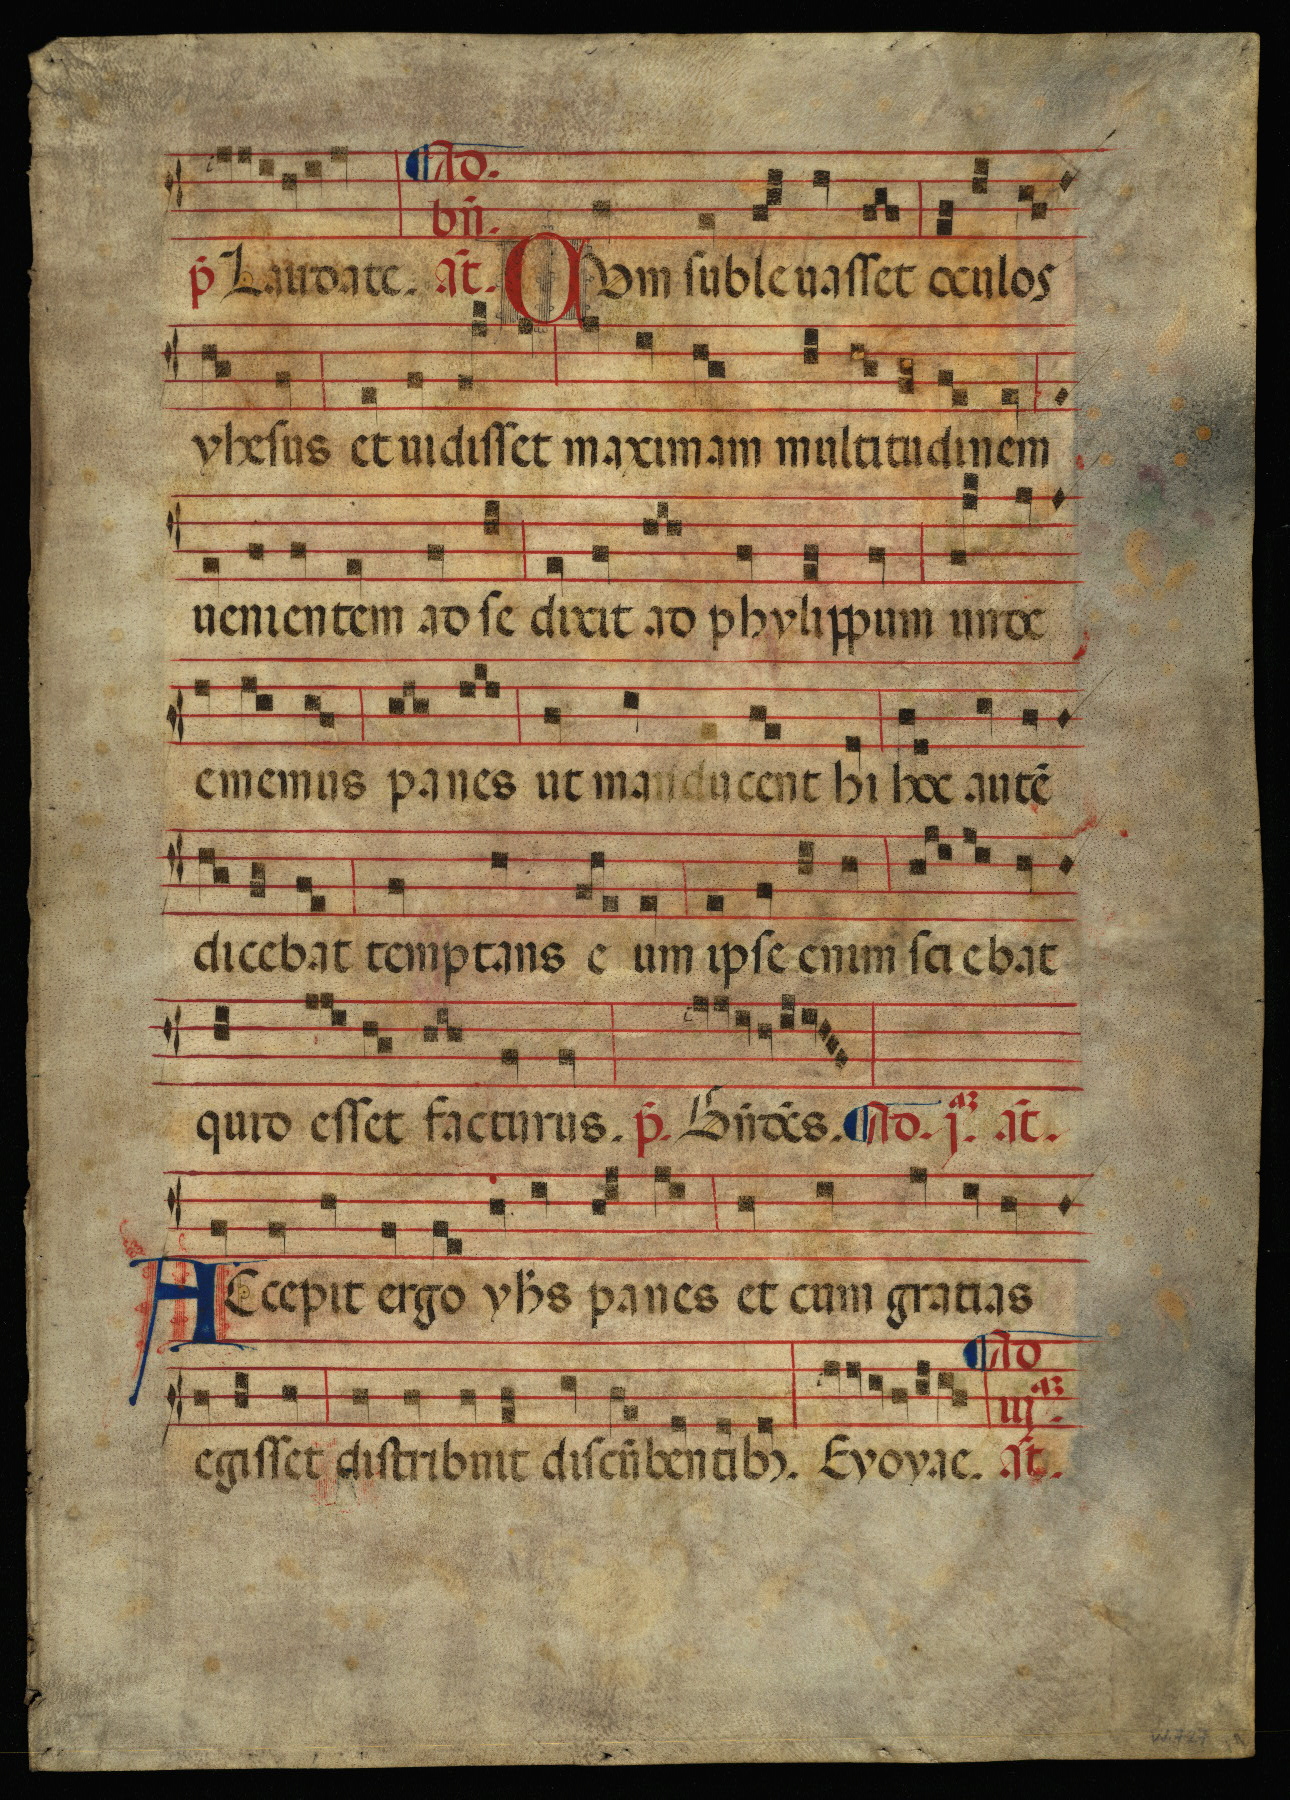 Ad.
bn̄.
p̄ Laudate. an̄t. Cum subleuasset oculos
yhesus et uidisset maximam multitudinem
uenientem ad se dixit ad phylippum unde
ememus panes ut manducent hi hoc autē
dicebat temptans eum ipse enim sciebat
quid esset facturus. p̄. Bn̄dc̄s. Ad. j.ᵃ ān̄t.
Accepit ergo yh̄s panes et cum gratias
Ad
iijᵃ.
egisset distribuit discūbentibꝫ. Evovae. an̄t.
W.727